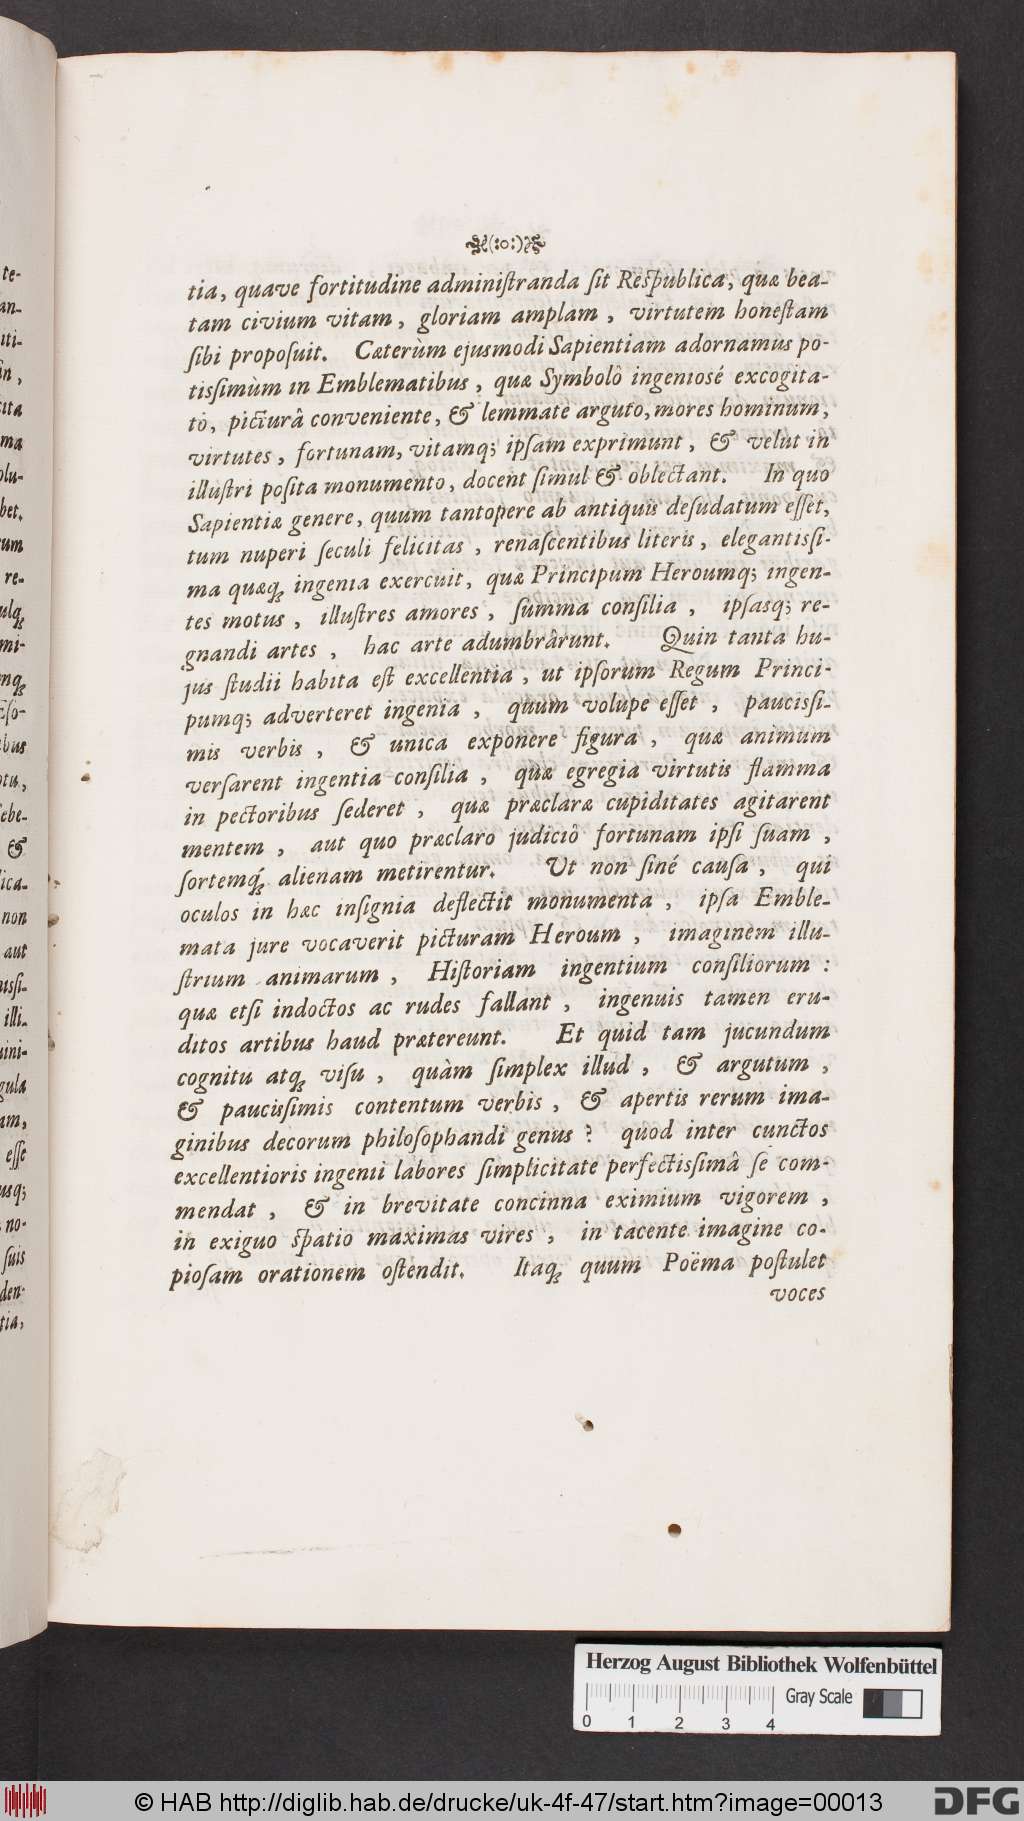 (:o:)
tia, quave fortitudine administranda sit Respublica, quæ bea-
tam civium vitam, gloriam amplam, virtutem honestam
sibi proposuit. Cæterùm ejusmodi Sapientiam adornamus po-
tissimùm in Emblematibus, quæ Symbolô ingeniosé excogita-
tô, picturâ conveniente, & lemmate arguto, mores hominum,
virtutes, fortunam, vitamq; ipsam exprimunt, & velut in
illustri posita monumento, docent simul & oblectant. In quo
Sapientiæ genere, quum tantopere ab antiquis desudatum esset,
tum nuperi seculi felicitas, renascentibus literis, elegantissi-
ma quæq; ingenia exercuit, quæ Principum Heroumq; ingen-
tes motus, illustres amores, summa consilia, ipsasq; re-
gnandi artes, hac arte adumbrârunt. Quin tanta hu-
jus studii habita est excellentia, ut ipsorum Regum Princi-
pumq; adverteret ingenia, quum volupe esset, paucissi-
mis verbis, & unica exponere figura, quæ animum
versarent ingentia consilia, quæ egregia virtutis flamma
in pectoribus sederet, quæ præclaræ cupiditates agitarent
mentem, aut quo præclaro judiciô fortunam ipsi suam,
sortemq; alienam metirentur. Ut non siné causa, qui
oculos in hæc insignia deflectit monumenta, ipsa Emble-
mata jure vocaverit picturam Heroum, imaginem illu-
strium animarum, Historiam ingentium consiliorum:
quæ etsi indoctos ac rudes fallant, ingenuis tamen eru-
ditos artibus haud prætereunt. Et quid tam jucundum
cognitu atq; visu, quàm simplex illud, & argutum,
& paucissimis contentum verbis, & apertis rerum ima-
ginibus decorum philosophandi genus? quod inter cunctos
excellentioris ingenii labores simplicitate perfectissimâ se com-
mendat, & in brevitate concinna eximium vigorem,
in exiguo spatio maximas vires, in tacente imagine co-
piosam orationem ostendit. Itaq; quum Poëma postulet
voces
te-
an-
iti-
ita
ma
olu-
bet.
re-
mi-
ebe-
&
ica-
non
aut
illi-
gula
am,
esse
usq;
no-
suis
den-
tia,
Herzog August Bibliothek Wolfenbüttel
0 1 2 3 4
Gray Scale
© HAB http://diglib.hab.de/drucke/uk-4f-47/start.htm?image=00013
DFG